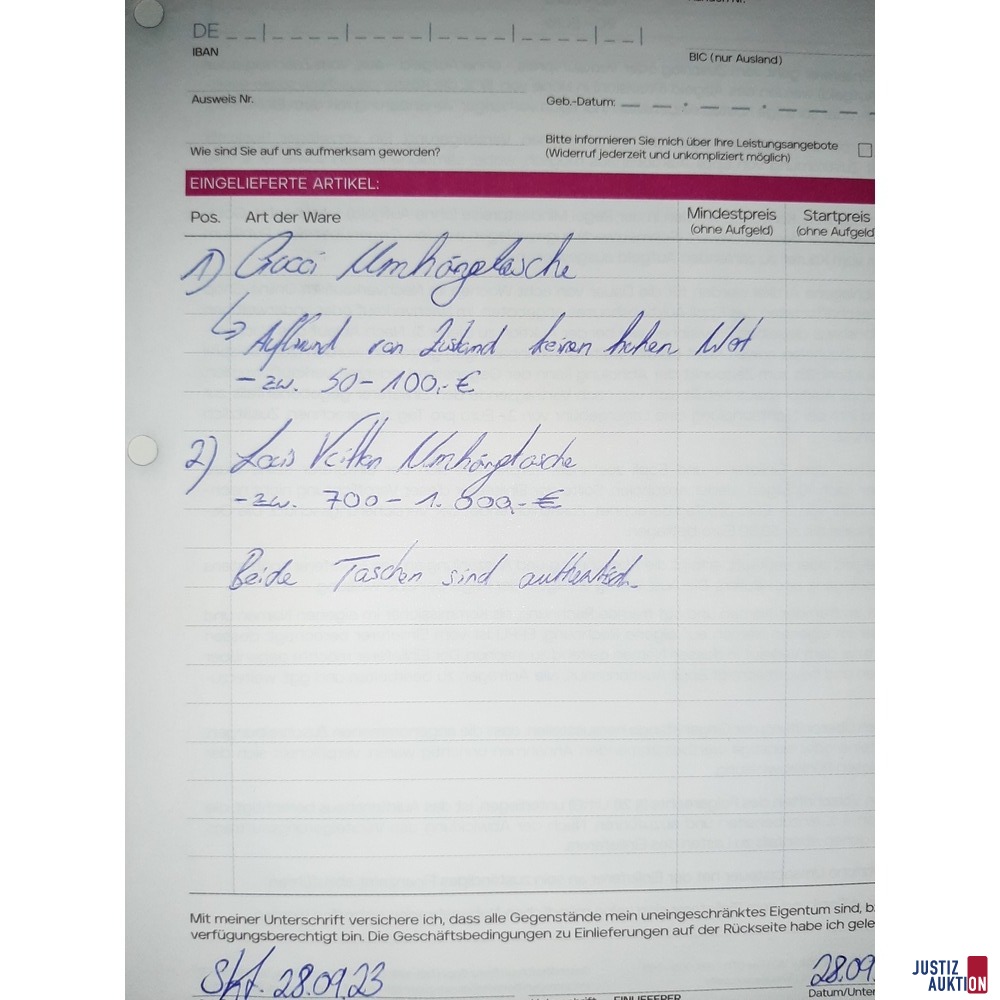 DE
IBAN
BIC (nur Ausland)
Ausweis Nr.
Geb.-Datum:
Bitte informieren Sie mich über Ihre Leistungsangebote
(Widerruf jederzeit und unkompliziert möglich)
Wie sind Sie auf uns aufmerksam geworden?
EINGELIEFERTE ARTIKEL:
Pos. Art der Ware Mindestpreis (ohne Aufgeld) Startpreis (ohne Aufgeld
1) Gucci Umhängetasche
↳ Aufgrund von Zustand keinen hohen Wert
- zw. 50 - 100,- €
2) Louis Vuitton Umhängetasche
- zw. 700 - 1.000,- €
Beide Taschen sind authentisch.
Mit meiner Unterschrift versichere ich, dass alle Gegenstände mein uneingeschränktes Eigentum sind, b
verfügungsberechtigt bin. Die Geschäftsbedingungen zu Einlieferungen auf der Rückseite habe ich gele
28.09.23 28.09.
EINLIEFERER Datum/Unter
JUSTIZ
AUKTION